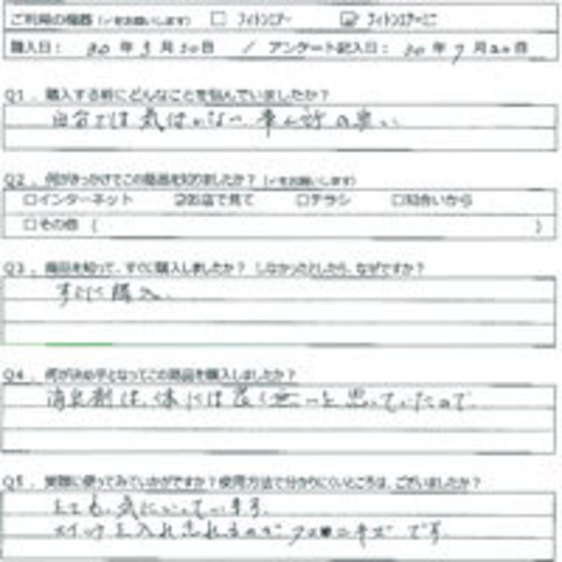 ご利用の機器（✓をお願いします） □ フィトンエアー ☑ フィトンエアーミニ
購入日： 30 年 5 月 30 日 / アンケート記入日： 30 年 7 月 20 日
Q1．購入する前にどんなことを悩んでいましたか？
自分では気付かない、車内の臭い
Q2．何がきっかけでこの商品を知りましたか？（✓をお願いします）
□インターネット ☑お店で見て □チラシ □知合いから
□その他（ ）
Q3．商品を知って、すぐに購入しましたか？ しなかったとしたら、なぜですか？
すぐに購入。
Q4．何が決め手となってこの商品を購入しましたか？
消臭剤は、体には良く無いと思っていたので。
Q5．実際に使ってみていかがですか？使用方法で分かりにくいところは、ございましたか？
とても、気にいっています。
スイッチを入れ忘れるのが です。